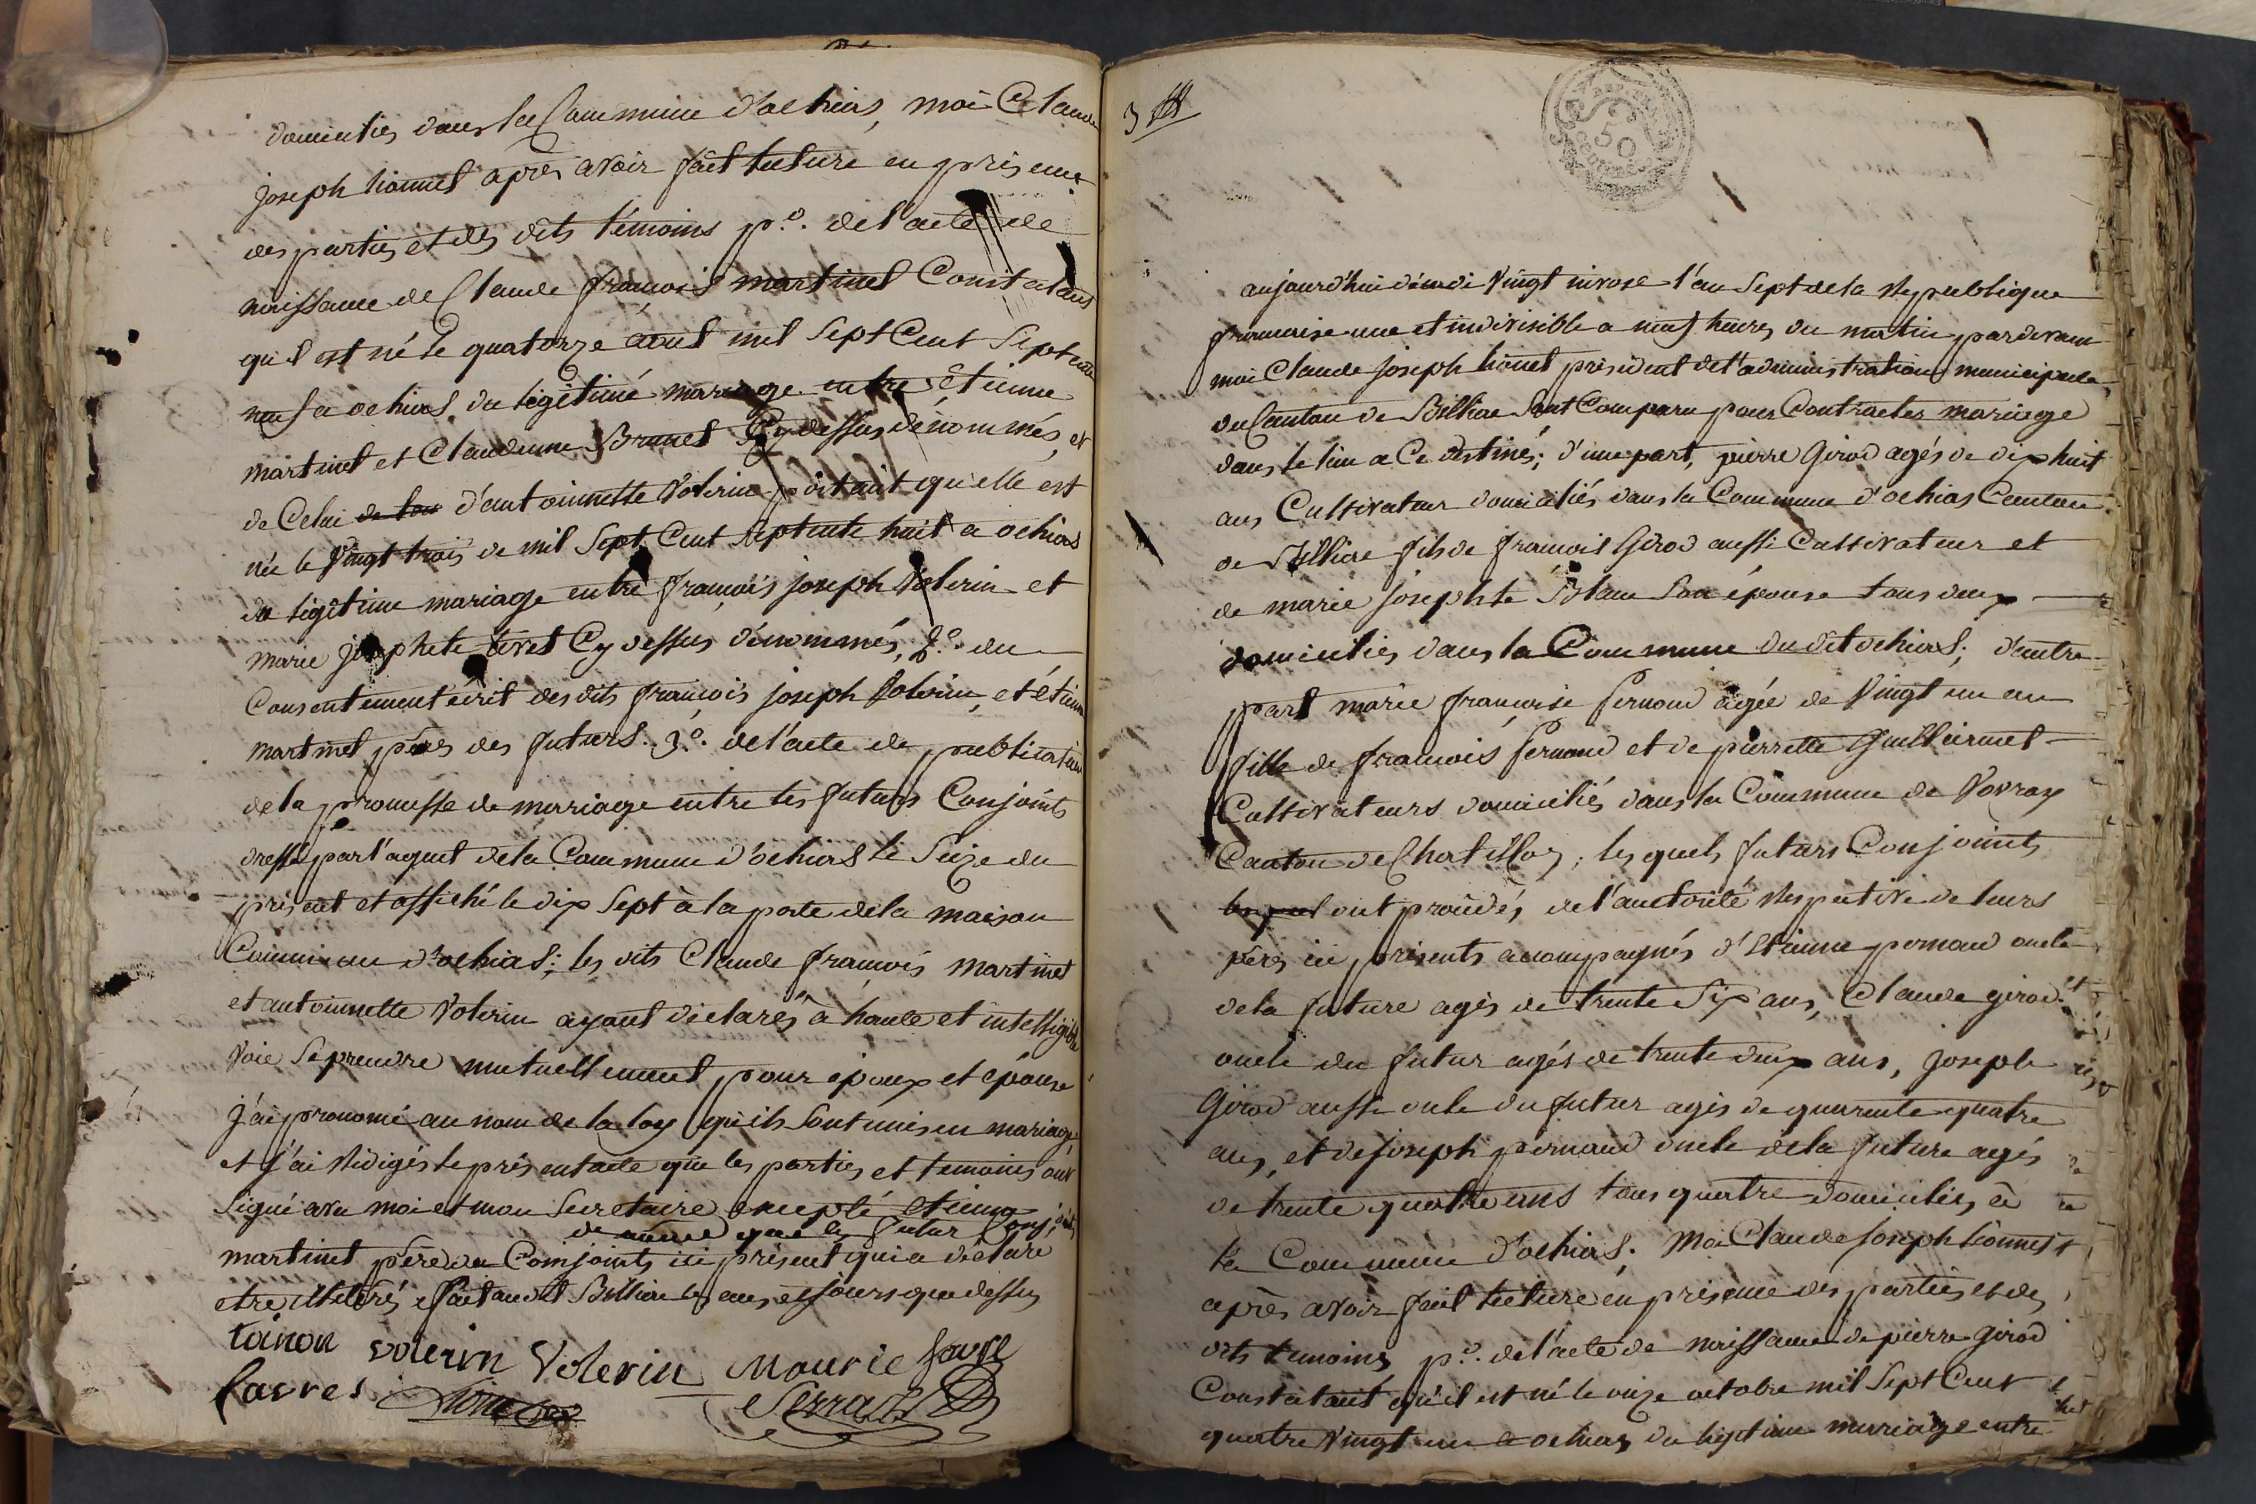 domiciliés dans la Commune d'ochias, moi Claude
joseph lionnet après avoir fait lecture en présence
des parties et des dits témoins p.o de l'acte de
naissance de Claude françois martinet Constatant
qu'il est né le quatorze aoust mil Sept Cent Septente
neuf a ochias du légitime mariage entre Étienne
martinet et Claudinne Brunet Cy dessus dénommés, et
de Celui de la d'antoinnette Volerin portant qu'elle est
née le Vingt trois de mil Sept Cent Septente huit a ochias
du légitime mariage entre françois joseph Volerin et
marie josephete tivet Cy dessus dénommés, 2.o du
Consentement écrit des dits françois joseph Volerin, et étienne
martinet pères des futurs. 3.o de l'acte de publication
de la promesse de mariage entre les futurs Conjoints
dressé par l'agent de la Commune d'ochias le Seize du
présent et affiché le dix Sept à la porte de la maison
Commune d'ochias; les dits Claude françois martinet
et antoinnette Volerin ayant déclarés à haute et intelligible
Voie Se prendre mutuellement pour époux et épouse
j'ai prononcé au nom de la loy qu'ils Sont unis en mariage
et j'ai Rédigés le présent acte que les parties et temoins ont
Signé avec moi et mon Secretaire excepté etienne
de même que les futur Conjoints
martinet père du Conjoints ici présent qui a déclaré
etre illitéré fait audit Billiat les ans et jours que dessus
tainon volerin Volerin Maurie favre
favres Lionnet Serraz
3
50
aujourd'hui décadi Vingt nivose l'an Sept de la Republique
francaise une et indivisible a neuf heures du matin pardevant
moi Claude joseph lionet président de l'administration municipale
du Canton de Billiat Sont Comparu pour Contracter mariage
dans le lieu a Ce destinés; d'une part, pierre Girod agés de dix huit
ans Cultivateur domiciliés dans la Commune d'ochias Canton
de Billiat fils de françois Girod aussi Cultivateur et
de marie josephte Blanc Son épouse tous deux
domiciliés dans la Commune du dit ochias; d'autre
part marie françoise Pernoud agée de Vingt un an
fille de françois Pernoud et de pierrette Guilliermet
Cultivateurs domiciliés dans la Commune de Vovray
Canton de Chatillon; les quels futurs Conjoints
les quel ont procédés de l'auctorité Respective de leurs
pères ici présents accompagnés d'Etienne pernoud oncle
de la future agés de trente Six ans, Claude girod
oncle du futur agés de trente deux ans, joseph
Girod aussi oncle du futur agés de quarente quatre
ans, et de joseph pernoud oncle de la future agés
de trente quatre ans tous quatre domiciliés à
la Commune d'ochias. Moi Claude joseph lionnet
après avoir fait lecture en présence des parties et des
dits temoins p.o de l'acte de naissance de pierre girod
Constatant qu'il est né le onze octobre mil Sept Cent
quatre Vingt un a ochias du légitime mariage entre